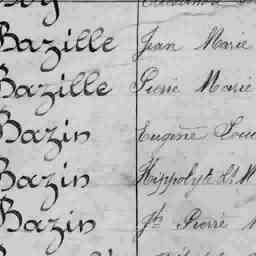 Bazille Jean Marie
Bazille Pierre Marie
Bazin Eugène
Bazin Hippolyte
Bazin Jh Pierre